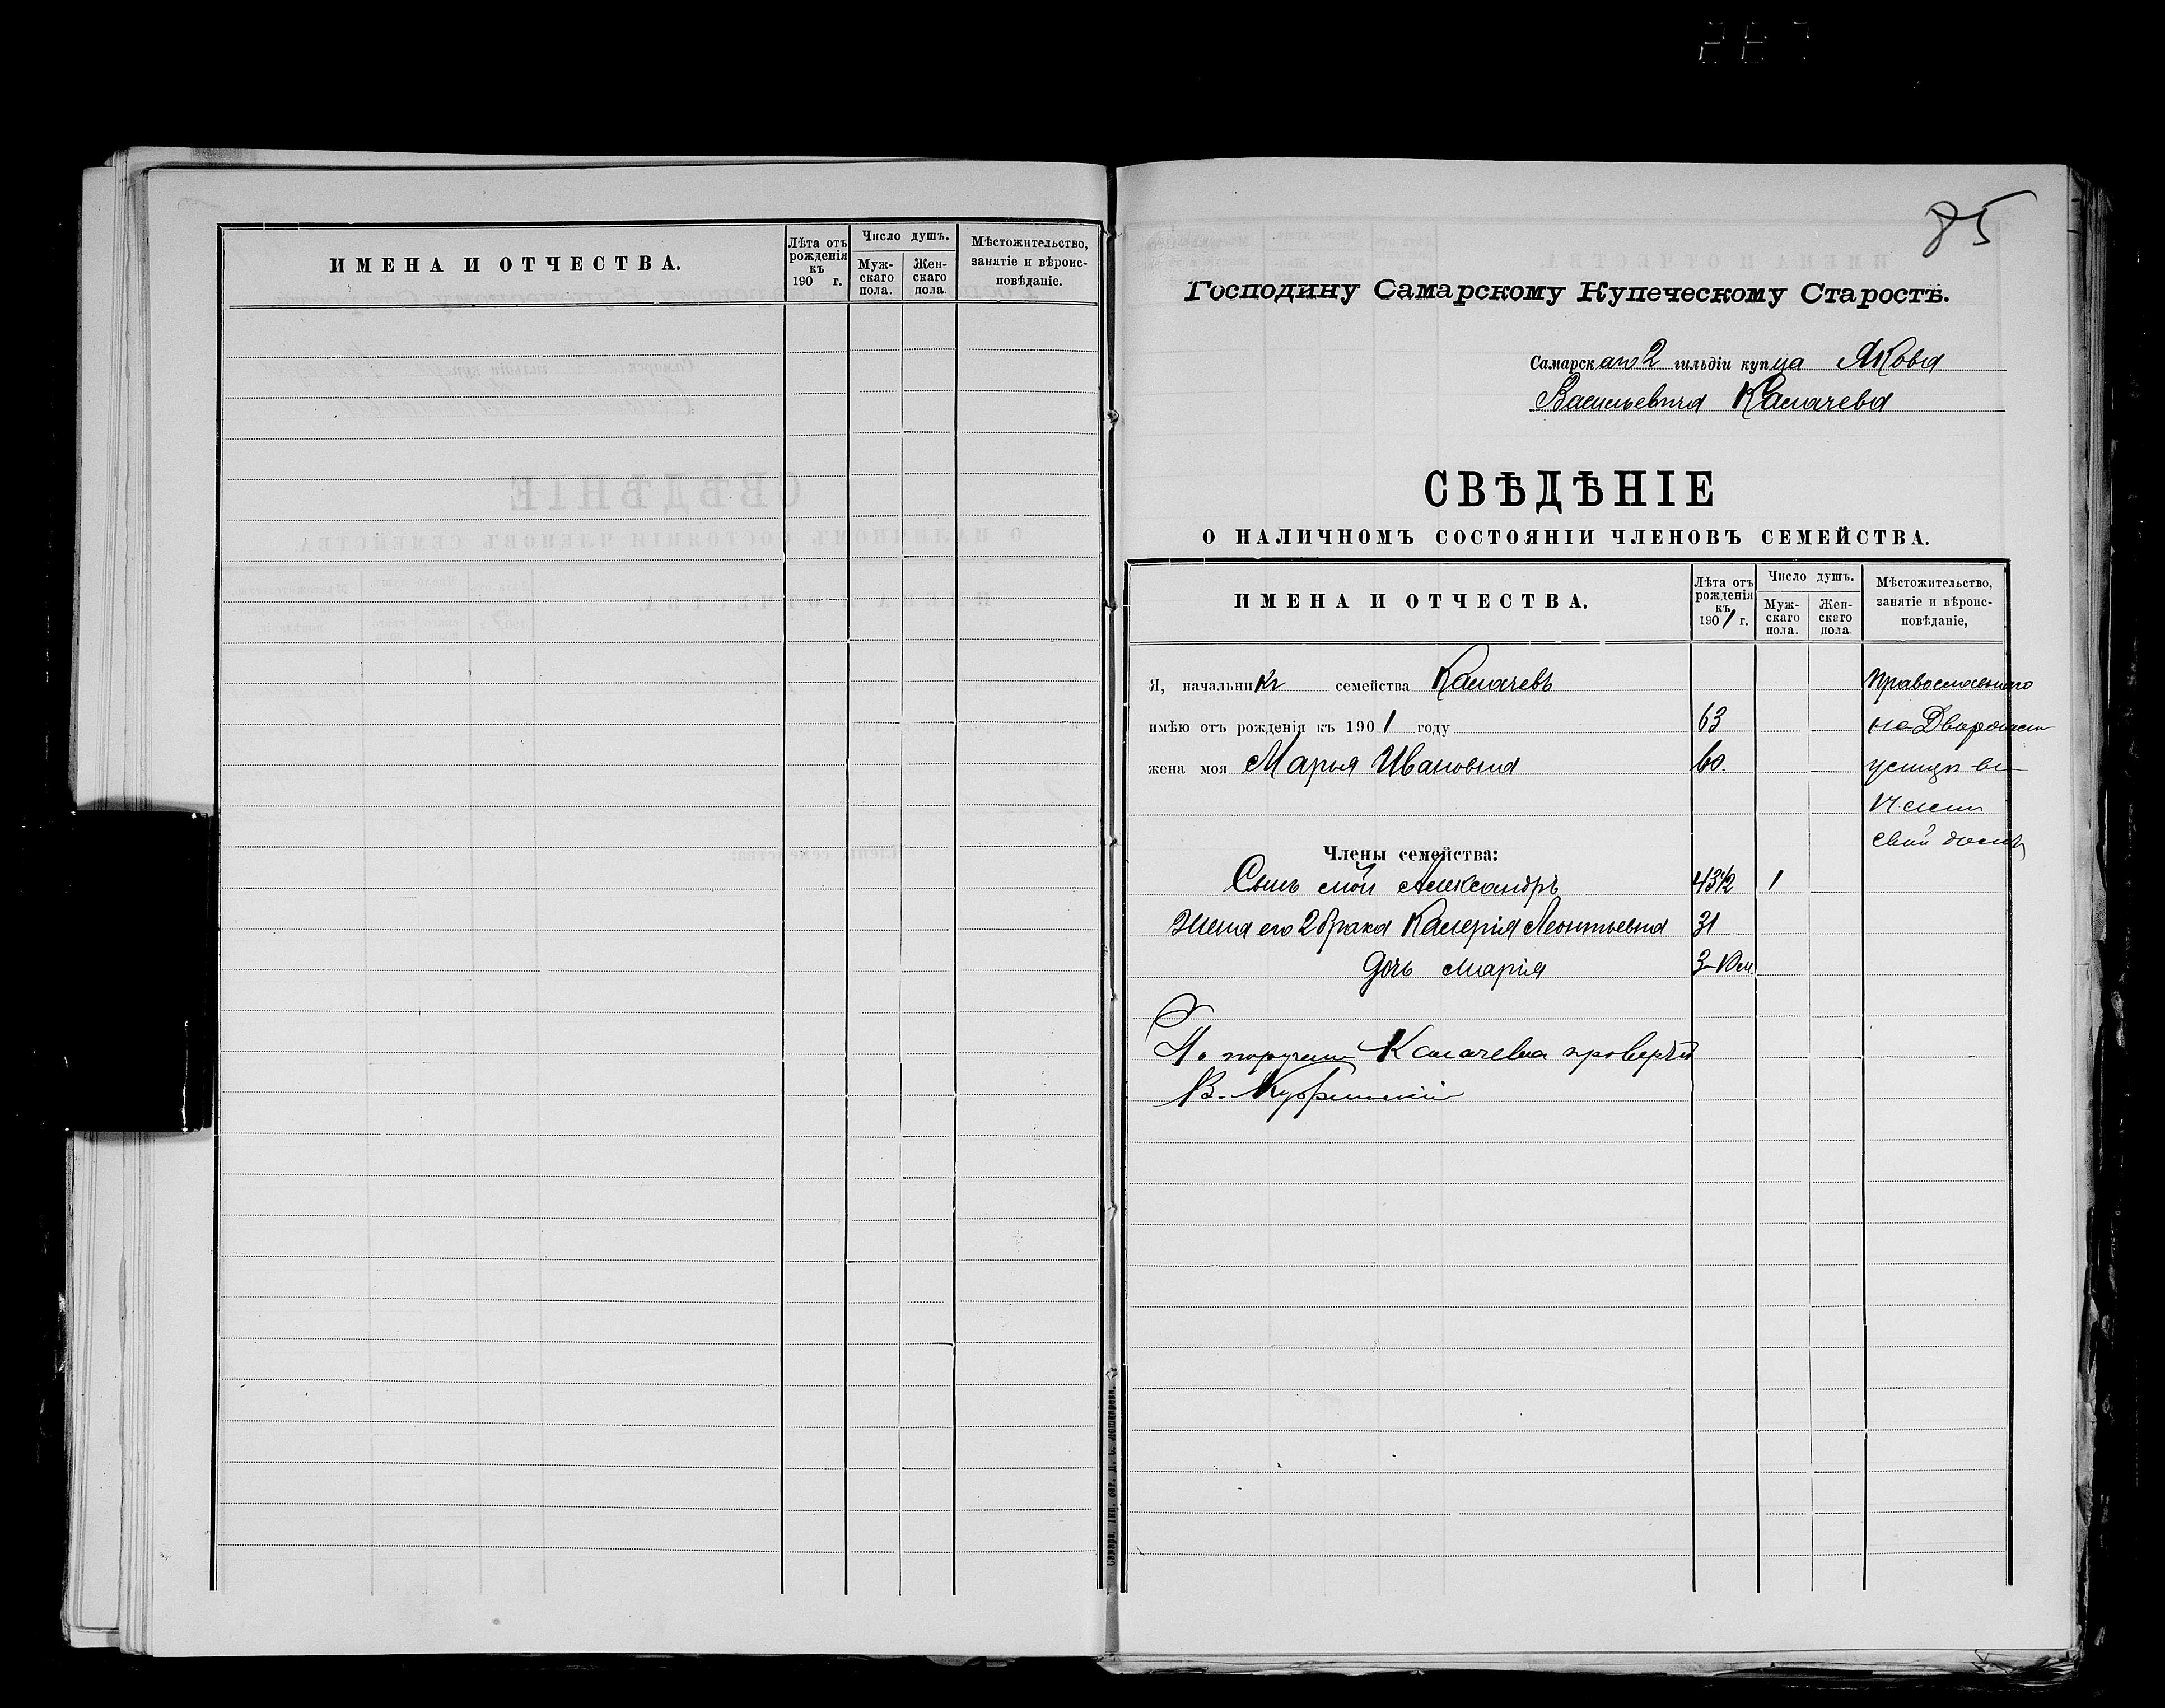 ИМЕНА И ОТЧЕСТВА.
Лѣта отъ рожденія къ 190 г.
Число душъ.
Мужскаго пола.
Женскаго пола.
Мѣстожительство, занятіе и вѣроисповѣданіе.
85
Господину Самарскому Купеческому Старостѣ.
Самарскаго 2 гильдіи купца Якова
Васильевича Калачева
СВѢДѢНІЕ
О НАЛИЧНОМЪ СОСТОЯНІИ ЧЛЕНОВЪ СЕМЕЙСТВА.
ИМЕНА И ОТЧЕСТВА.
Лѣта отъ рожденія къ 1901 г.
Число душъ.
Мужскаго пола.
Женскаго пола
Мѣстожительство, занятіе и вѣроисповѣданіе,
Я, начальникъ семейства Калачевъ Православнаго
имѣю отъ рожденія къ 1901 году 63 на Дворянск
жена моя Марья Ивановна 60. улицѣ въ
свой домъ
Члены семейства:
Сынъ мой Александръ 43½ 1
Жена его 2 брака Валерія Леонтьевна 31
Дочь Марія 3-10 м.
По порученію Калачева провѣрялъ
В.
Самара, Тип. бат. Д. С. Мошкарова.